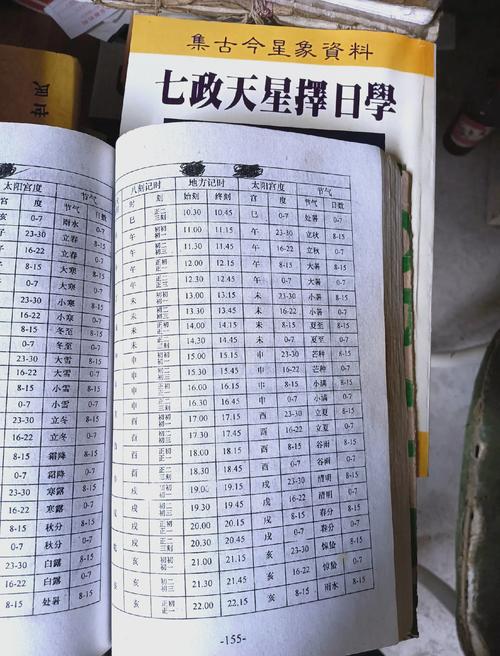 集古今星象資料
七政天星擇日學
太阳宫度 节气
宫 度 日数
亥 0-7 雨水 0-7
23-30 立春 8-15
16-22 立春 0-7
8-15 大寒 8-15
0-7 大寒 0-7
23-30 小寒 8-15
16-22 小寒 0-7
8-15 冬至 8-15
0-7 冬至 0-7
23-30 大雪 8-15
16-22 大雪 0-7
8-15 小雪 8-15
0-7 小雪 0-7
23-30 立冬 8-15
16-22 立冬 0-7
8-15 霜降 8-15
0-7 霜降 0-7
23-30 寒露 8-15
16-22 寒露 0-7
8-15 秋分 8-15
0-7 秋分 0-7
23-30 白露 8-15
16-22 白露 0-7
8-15 处暑 8-15
八刻记时 地方记时 太阳宫度 节气
时 刻 始刻 终刻 宫 度 日数
巳 10.30 10.45 巳 0-7 处暑 0-7
午 11.00 11.15 午 23-30 立秋 8-15
午 11.30 11.45 午 16-22 立秋 0-7
午 12.00 12.15 午 8-15 大暑 8-15
午 12.30 12.45 午 0-7 大暑 0-7
未 13.00 13.15 未 23-30 小暑 8-15
未 13.30 13.45 未 16-22 小暑 0-7
未 14.00 14.15 未 8-15 夏至 8-15
未 14.30 14.45 未 0-7 夏至 0-7
申 15.00 15.15 申 23-30 芒种 8-15
申 15.30 15.45 申 16-22 芒种 0-7
申 16.00 16.15 申 8-15 小满 8-15
申 16.30 16.45 申 0-7 小满 0-7
酉 17.00 17.15 酉 23-30 立夏 8-15
酉 17.30 17.45 酉 16-22 立夏 0-7
酉 18.00 18.15 酉 8-15 谷雨 8-15
酉 18.30 18.45 酉 0-7 谷雨 0-7
戌 19.00 19.15 戌 23-30 清明 8-15
戌 19.30 19.45 戌 16-22 清明 0-7
戌 20.00 20.15 戌 8-15 春分 8-15
戌 20.30 20.45 戌 0-7 春分 0-7
亥 21.00 21.15 亥 23-30 惊蛰 8-15
亥 21.30 21.45 亥 16-22 惊蛰 0-7
亥 22.00 22.15 亥 8-15 雨水 8-15
-155-